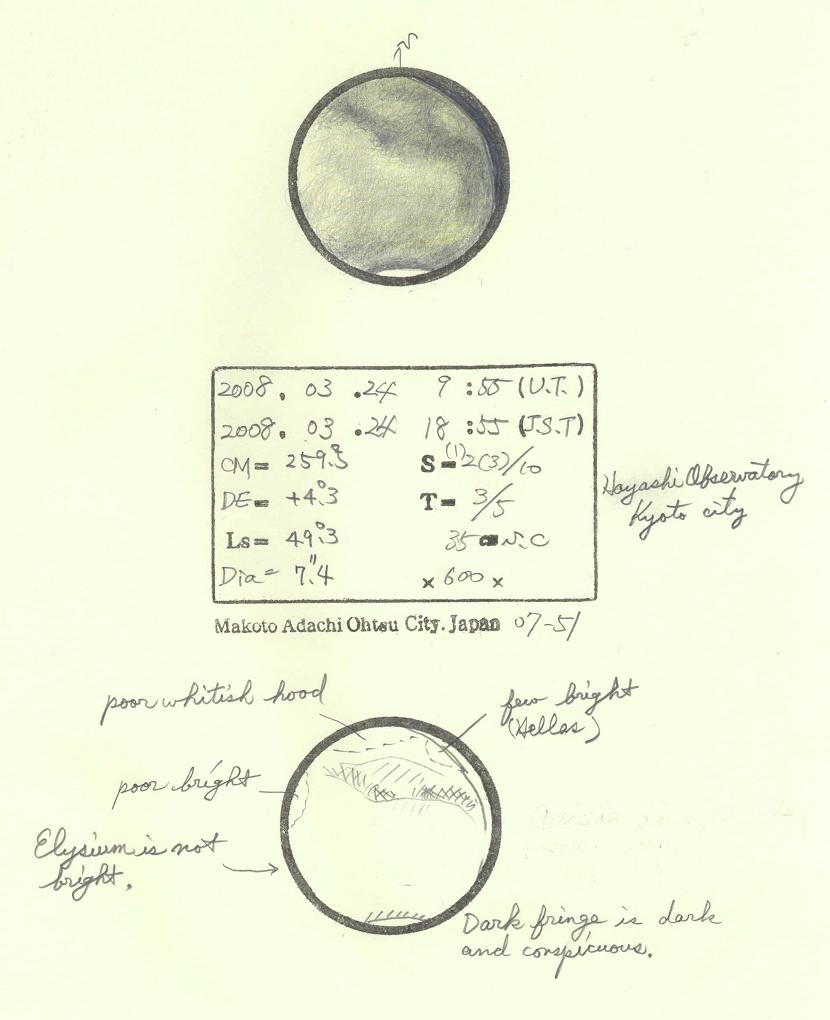 N
2008. 03 .24 9 :55 (U.T.)
2008. 03 .24 18 :55 (J.S.T)
CM= 259.°3 S=(1)2(3)/10
DE= +4.°3 T= 3/5
Ls= 49.°3 35 N.C
Dia= 7."4 × 600 ×
Hayashi Observatory
Kyoto city
Makoto Adachi Ohtsu City. Japan 07-51
poor whitish hood
few bright
(Hellas)
poor bright
Elysium is not
bright.
Dark fringe is dark
and conspicuous.